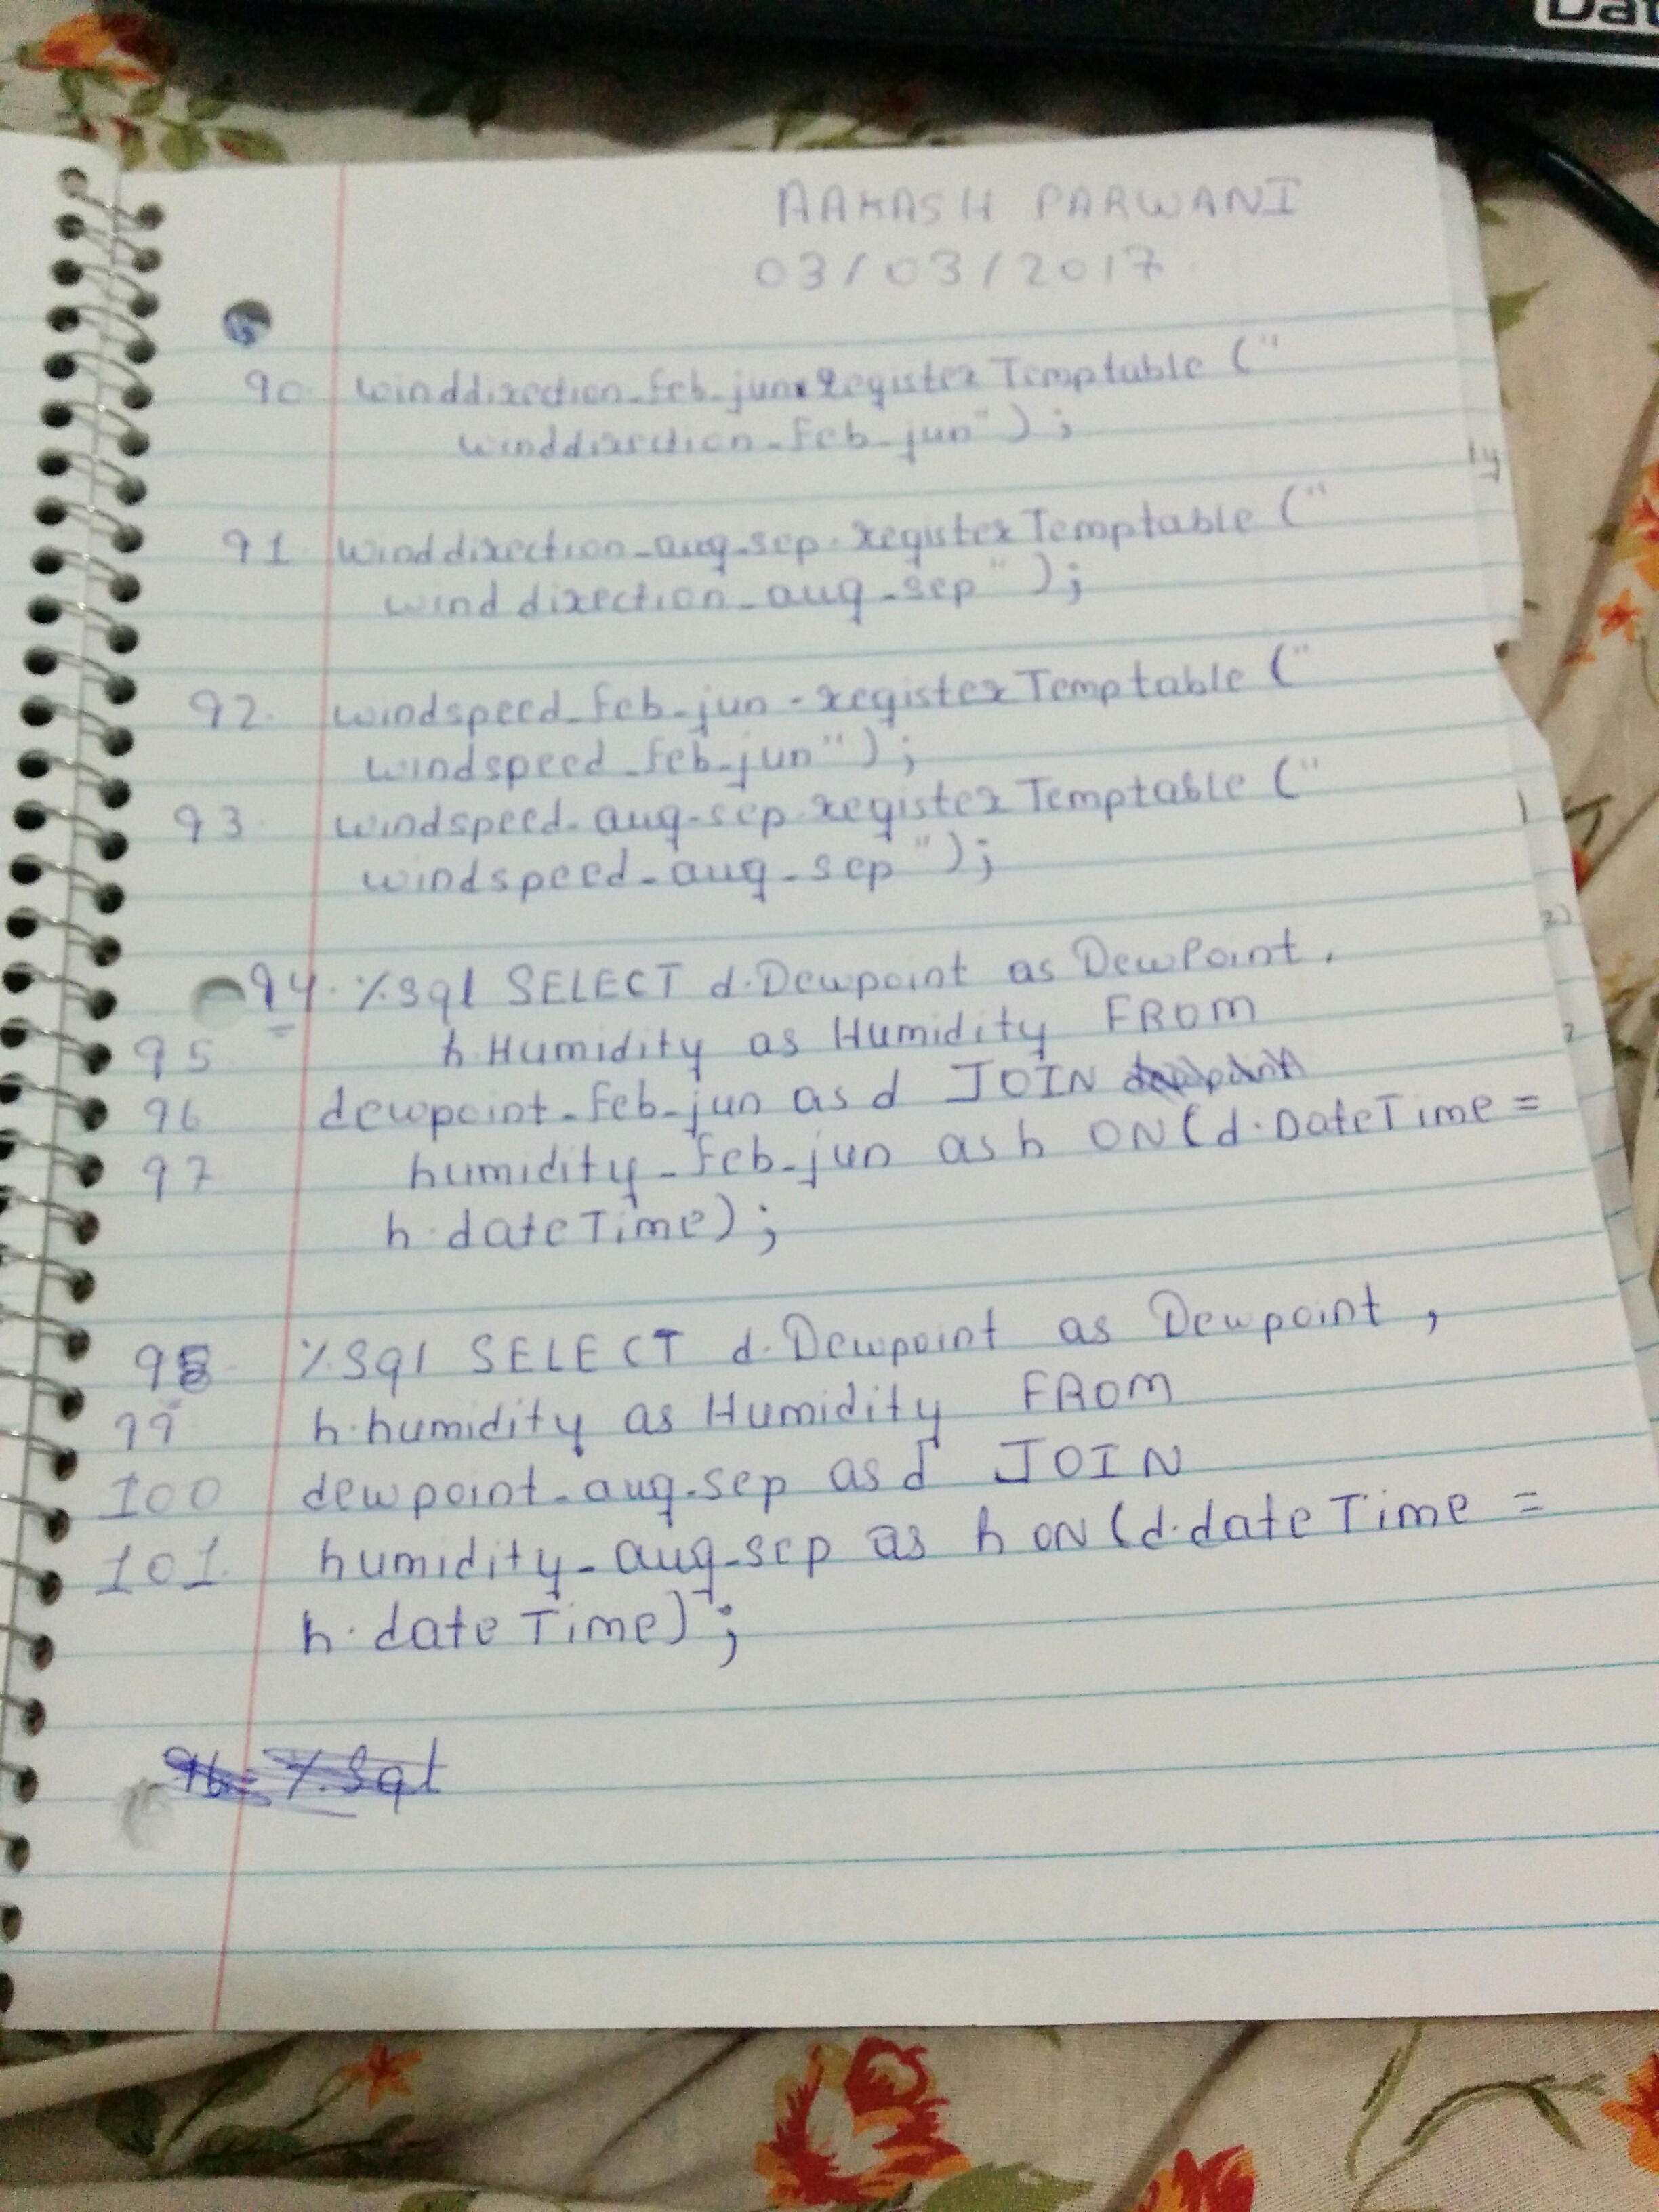 Dat
AAKASH PARWANI
03/03/2017.
90. winddirection_feb_jun.registerTemptable ("
winddirection_feb_jun");
91. winddirection_aug_sep.registerTemptable ("
winddirection_aug_sep");
92. windspeed_feb_jun.registerTemptable ("
windspeed_feb_jun");
93. windspeed_aug_sep.registerTemptable ("
windspeed_aug_sep");
94. %sql SELECT d.Dewpoint as DewPoint,
95 h.Humidity as Humidity FROM
96 dewpoint_feb_jun as d JOIN
97 humidity_feb_jun as h ON(d.DateTime =
h.dateTime);
98. %sql SELECT d.Dewpoint as Dewpoint,
99 h.humidity as Humidity FROM
100 dewpoint_aug_sep as d JOIN
101. humidity_aug_sep as h ON(d.dateTime =
h.dateTime);
96. %sql